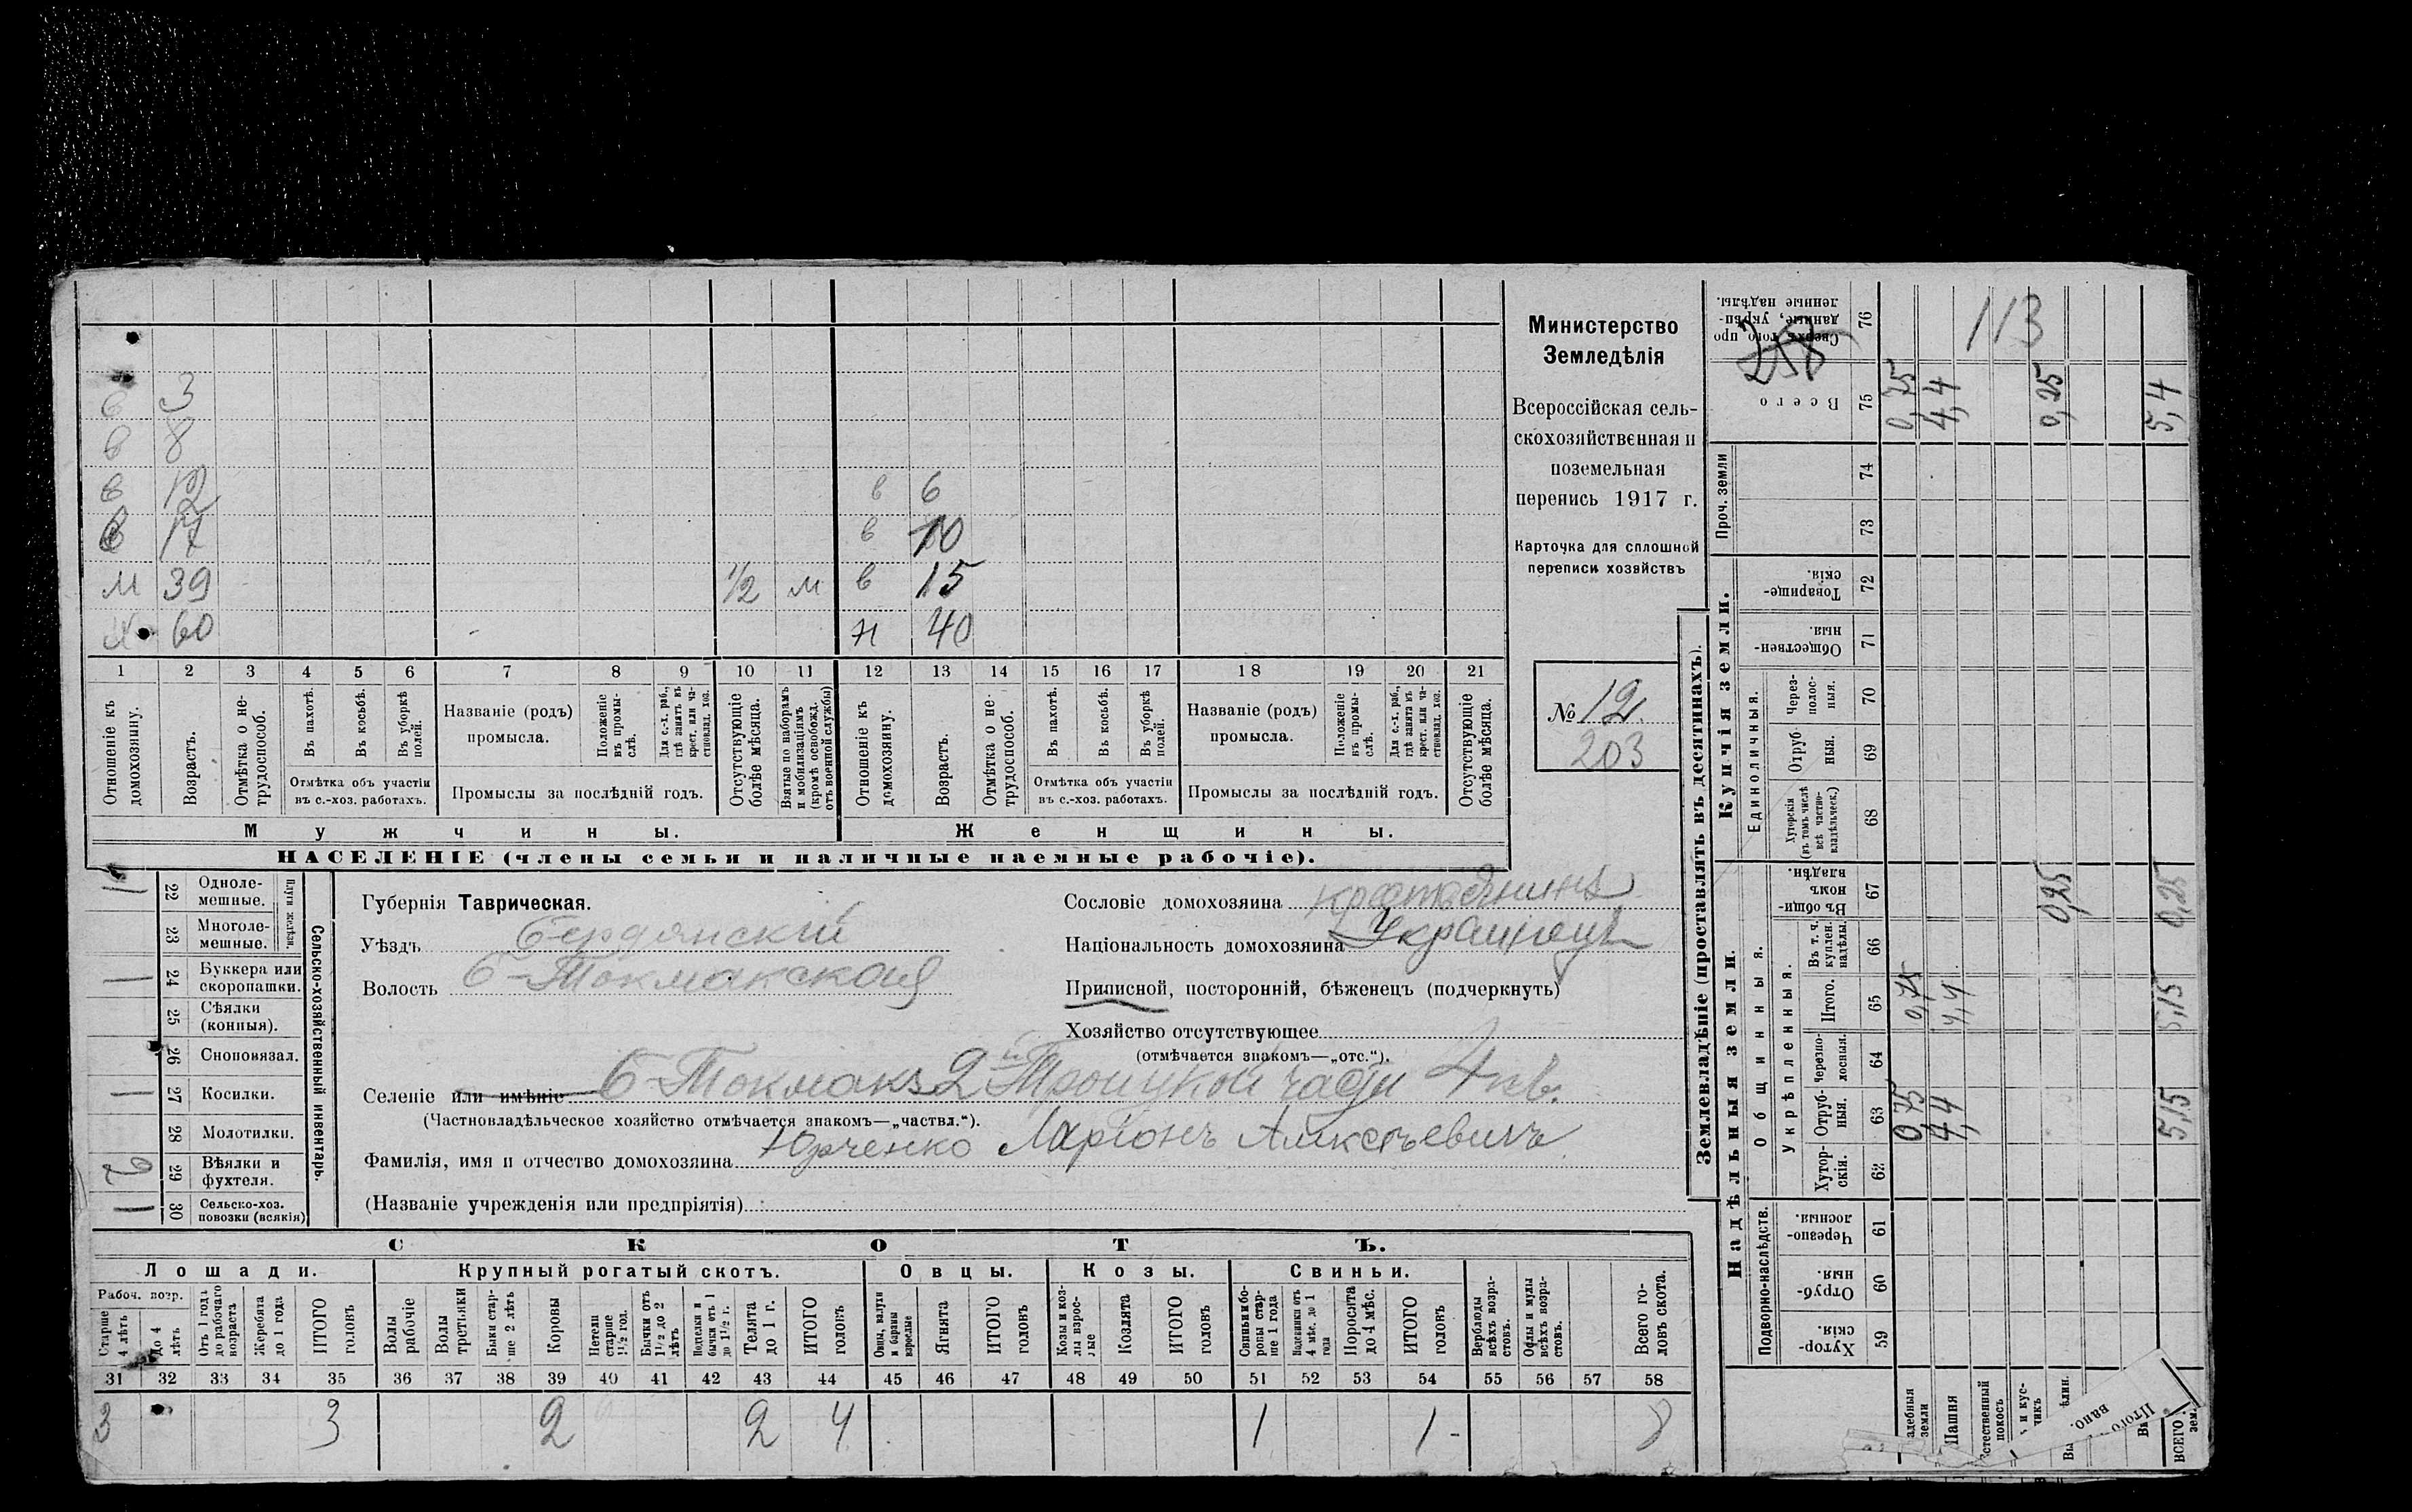 Министерство
Земледѣлія
Всероссійская сель-
скохозяйственная и
поземельная
перепись 1917 г.
Карточка для сплошной
переписи хозяйствъ
№ 12
203
3
в 8
в 12 в 6
в 17 в 10
м 39 1/2 м в 15
60 н 40
1 2 3 4 5 6 7 8 9 10 11 12 13 14 15 16 17 18 19 20 21
Отношеніе къ домохозяину.
Возрастъ.
Отмѣтка о не-трудоспособ.
Въ пахотѣ.
Въ косьбѣ.
Въ уборкѣ полей.
Отмѣтка объ участіи въ с.-хоз. работахъ.
Названіе (родъ) промысла.
Положеніе въ промы-слѣ.
Для с.-х. раб., гдѣ занятъ въ крест. или ча-стновлад. хоз.
Промыслы за послѣдній годъ.
Отсутствующіе болѣе мѣсяца.
Взятые по наборамъ и мобилизаціямъ (кромѣ освобожд. отъ военной службы)
Отношеніе къ домохозяину.
Возрастъ.
Отмѣтка о не-трудоспособ.
Въ пахотѣ.
Въ косьбѣ.
Въ уборкѣ полей.
Отмѣтка объ участіи въ с.-хоз. работахъ.
Названіе (родъ) промысла.
Положеніе въ промы-слѣ.
Для с.-х. раб., гдѣ занята въ крест. или ча-стновлад. хоз.
Промыслы за послѣдній годъ.
Отсутствующіе болѣе мѣсяца.
Мужчины. Женщины.
НАСЕЛЕНІЕ (члены семьи и наличные наемные рабочіе).
Сельско-хозяйственный инвентарь.
Плуги желѣзн.
22 Одноле-мешные. 1
23 Многоле-мешные.
24 Буккера или скоропашки. 1
25 Сѣялки (конныя).
26 Сноповязал.
27 Косилки. 1
28 Молотилки.
29 Вѣялки и фухтеля.
30 Сельско-хоз. повозки (всякія) 1
Губернія Таврическая.
Уѣздъ Бердянскій
Волость Б-Токмакская
Сословіе домохозяина крестьянинъ
Національность домохозяина Украинецъ
Приписной, посторонній, бѣженецъ (подчеркнуть)
Хозяйство отсутствующее
(отмѣчается знакомъ—„отс.“).
Селеніе или имѣніе Б-Токмакъ 2й Троицкой части 4 кв.
(Частновладѣльческое хозяйство отмѣчается знакомъ—„частвл.“).
Фамилія, имя и отчество домохозяина Юрченко Ларіонъ Алексѣевичъ
(Названіе учрежденія или предпріятія)
СКОТЪ.
Лошади. Крупный рогатый скотъ. Овцы. Козы. Свиньи.
Рабоч. возр.
Старше 4 лѣтъ
До 4 лѣтъ
Отъ 1 года до рабочаго возраста
Жеребята до 1 года
ИТОГО головъ
Волы рабочіе
Волы третьяки
Быки стар-ше 2 лѣтъ
Коровы
Нетели старше 1½ год.
Бычки отъ 1½ до 2 лѣтъ
Телки и бычки отъ 1 до 1½ г.
Телята до 1 г.
ИТОГО головъ
Овцы, валухи и бараны взрослые
Ягнята
ИТОГО головъ
Козы и коз-лы взрос-лые
Козлята
ИТОГО головъ
Свиньи и бо-ровы стар-ше 1 года
Подсвинки отъ 4 мѣс. до 1 года
Поросята до 4 мѣс.
ИТОГО головъ
Верблюды всѣхъ возра-стовъ.
Ослы и мулы всѣхъ возра-стовъ.
Всего го-ловъ скота.
31 32 33 34 35 36 37 38 39 40 41 42 43 44 45 46 47 48 49 50 51 52 53 54 55 56 57 58
3 3 2 2 4 1 1 8
Землевладѣніе (проставлять въ десятинахъ).
Надѣльныя земли. Купчія земли.
Подворно-наслѣдств.
Общинныя.
Укрѣпленныя.
Единоличныя.
Проч. земли
Хутор-скія. 59
Отруб-ныя. 60
Черезпо-лосныя. 61
Хутор-скія. 62
Отруб-ныя. 63
Черезпо-лосныя. 64
Итого. 65
Въ т. ч. куплен. надѣлы. 66
Въ общи-номъ владѣн. 67
Хуторскія (въ томъ числѣ всѣ частно-владѣльческ.) 68
Отруб-ныя. 69
Через-полос-ныя. 70
Обществен-ныя. 71
Товарище-скія. 72
73
74
Всего 75
Сверхъ того про-данные, укрѣп-ленные надѣлы. 76
258
113
адебныя земли 0,75 0,75 0,75
Пашня 4,4 4,4 4,4
стественный покосъ
0,25 0,25
Итого вано.
ВСЕГО зем. 5,15 5,15 0,25 5,4